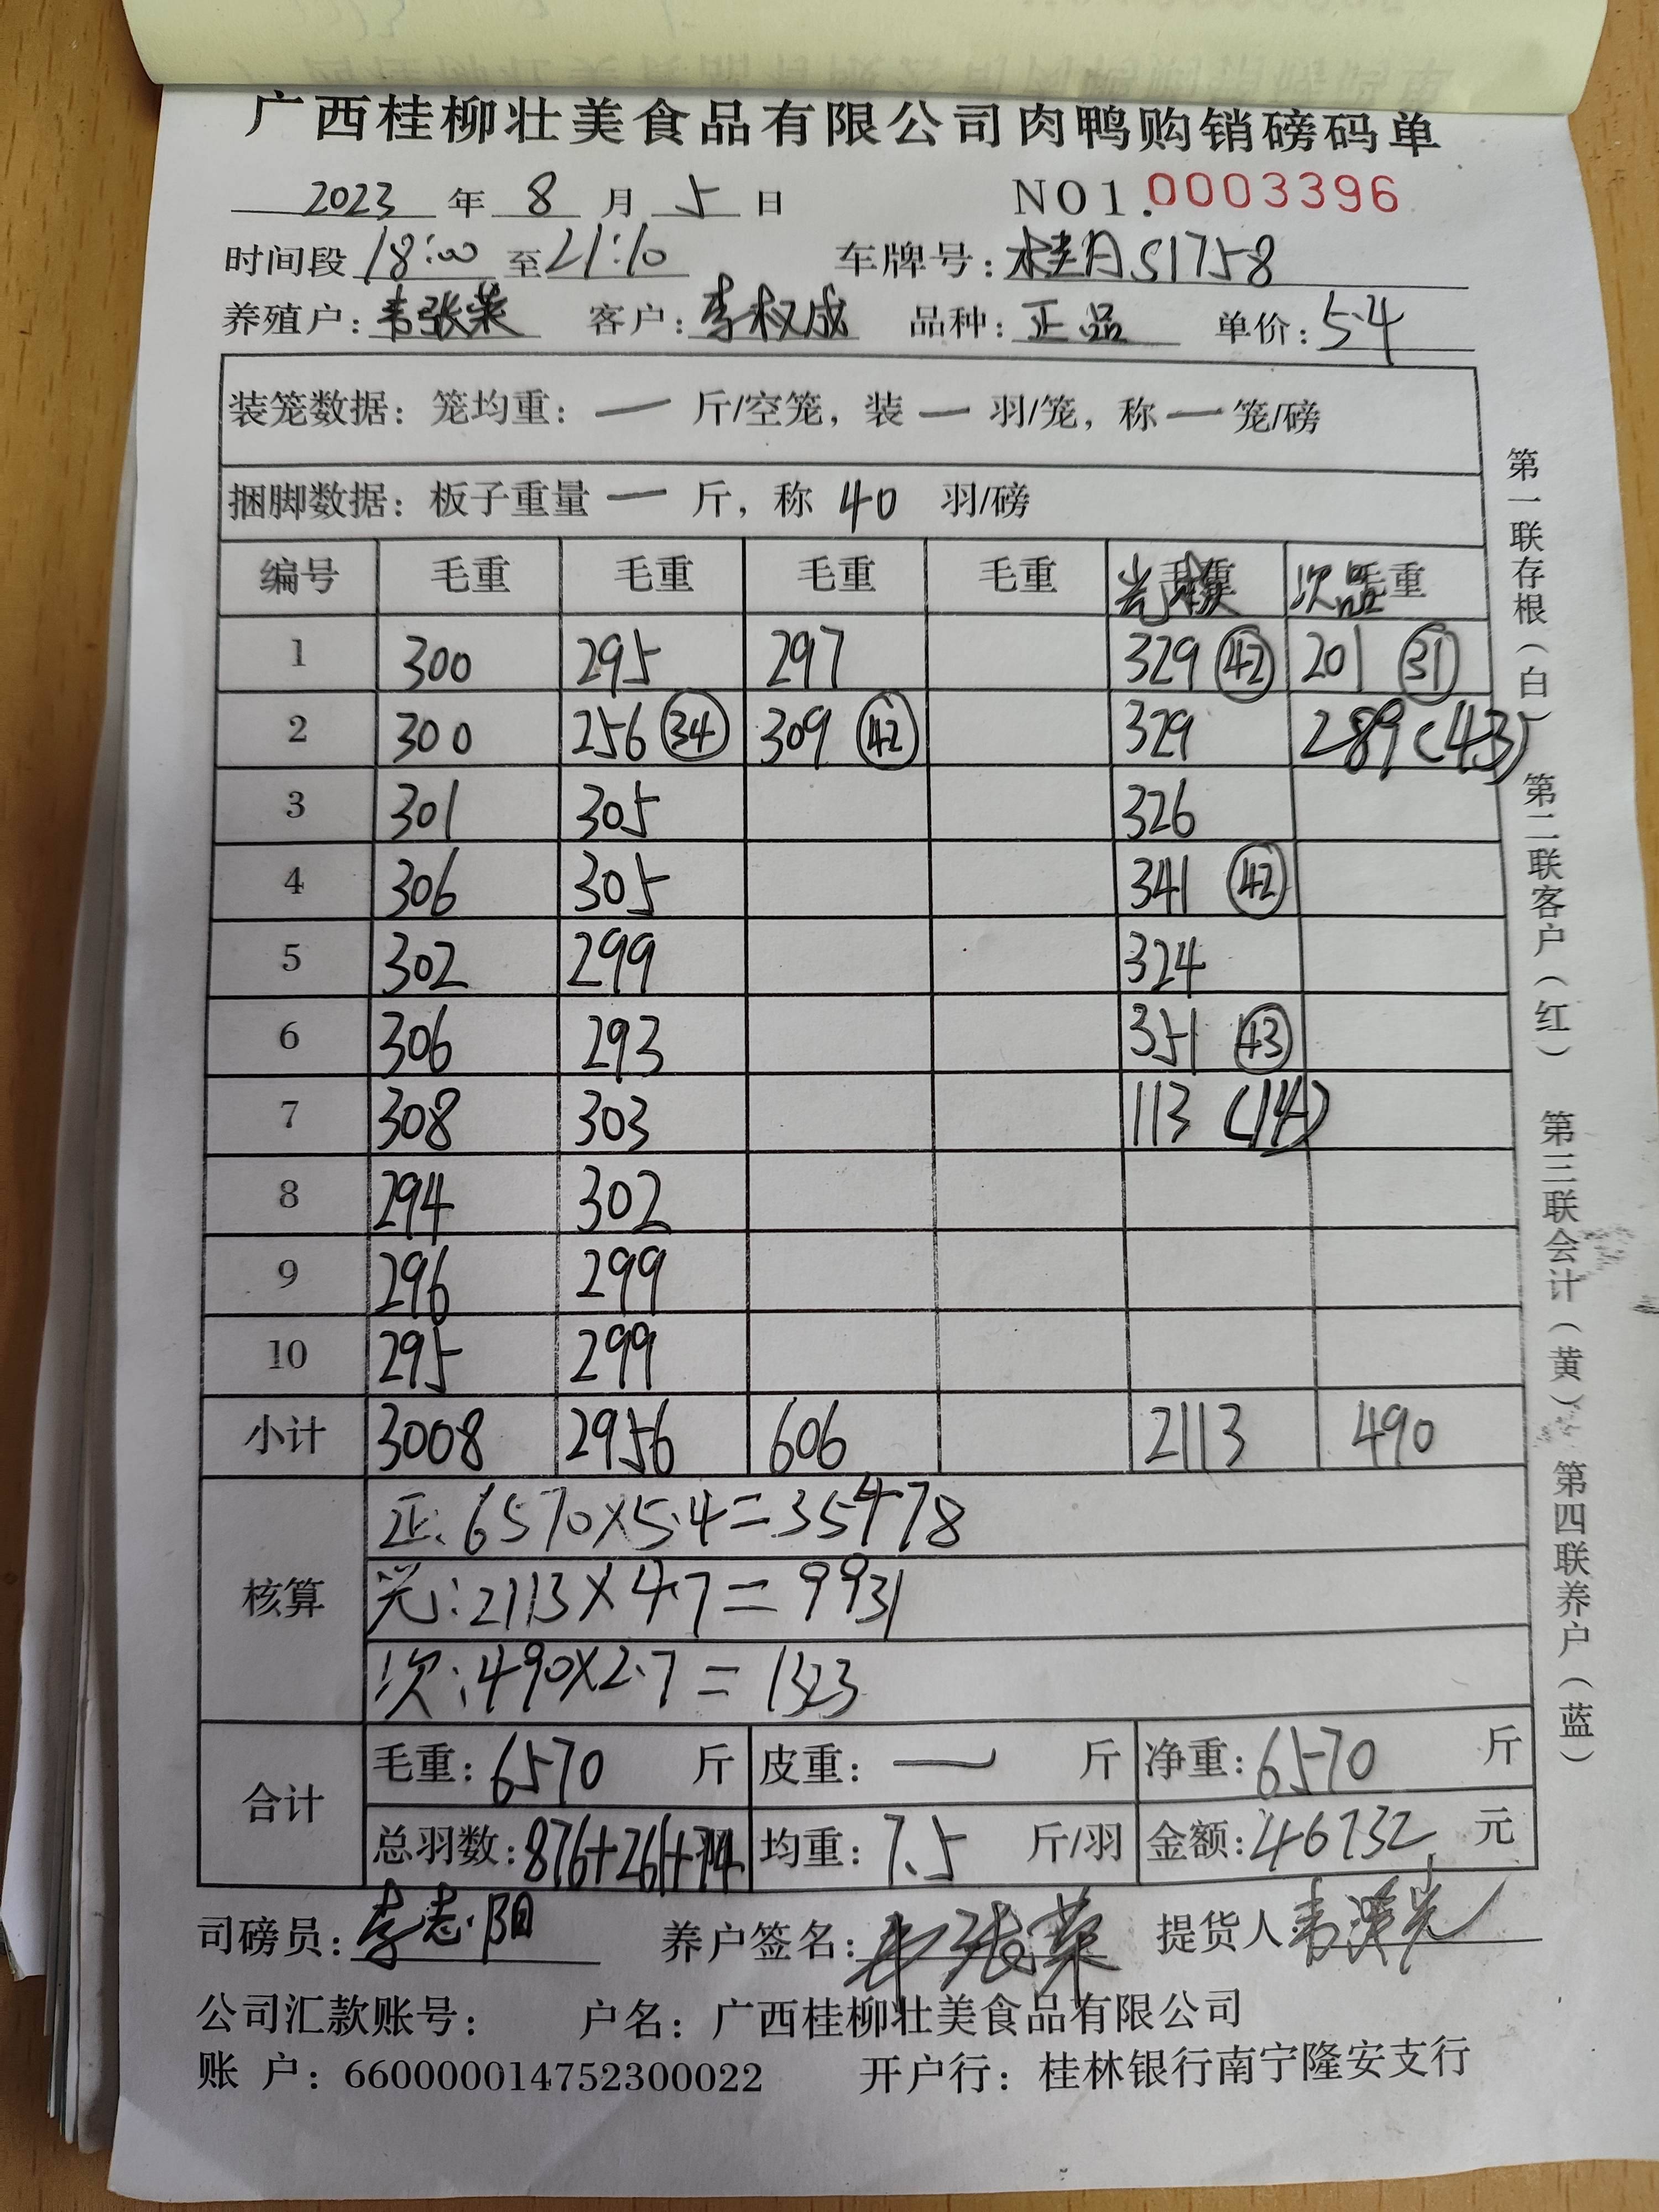 广西桂柳壮美食品有限公司肉鸭购销磅码单
2023 年 8 月 5 日 NO1.0003396
时间段 18:00 至 21:10 车牌号: 桂AS1758
养殖户: 韦张荣 客户: 李权成 品种: 正品 单价: 5.4
装笼数据: 笼均重: — 斤/空笼, 装 — 羽/笼, 称 — 笼/磅
捆脚数据: 板子重量 — 斤, 称 40 羽/磅
编号 毛重 毛重 毛重 毛重 毛重 次品毛重
1 300 295 297 329 (42) 201 (31)
2 300 256 (34) 309 (42) 329 289 (43)
3 301 305 326
4 306 305 341 (42)
5 302 299 324
6 306 293 351 (43)
7 308 303 113 (14)
8 294 302
9 296 299
10 295 299
小计 3008 2956 606 2113 490
核算
正: 6570×5.4=35478
光: 2113×4.7=9931
次: 490×2.7=1323
合计
毛重: 6570 斤 皮重: — 斤 净重: 6570 斤
总羽数: 876+261+74 均重: 7.5 斤/羽 金额: 46732 元
司磅员: 李志阳 养户签名: 韦张荣 提货人 韦
公司汇款账号: 户名: 广西桂柳壮美食品有限公司
账 户: 660000014752300022 开户行: 桂林银行南宁隆安支行
第一联存根(白) 第二联客户(红) 第三联会计(黄) 第四联养户(蓝)